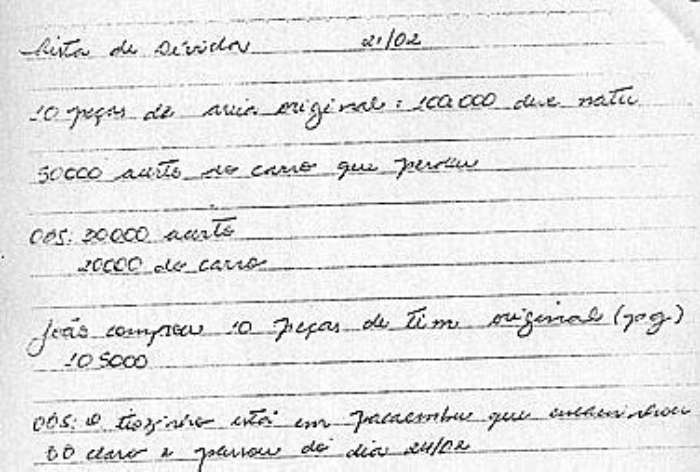 Lista de Dívida 21/02
10 peças de areia original: 100.000 deve natu
50000 acerto do carro que perdeu
OBS: 30000 acerto
20000 do carro
João comprou 10 peças de Tim original (pg)
105000
OBS: o tiozinho está em Pacaembu que encaminhou
00 claro e passou do dia 24/02